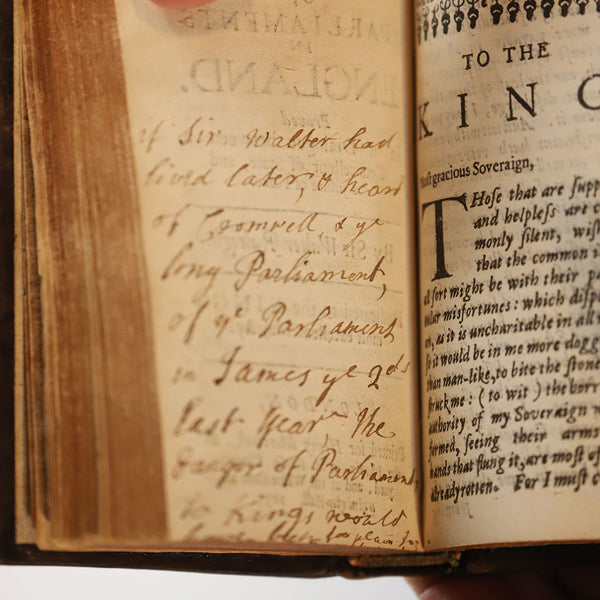 if Sir Walter had
lived later, & heard
of Cromwell, & ye
long Parliament,
of ye Parliament
in James ye 2ds
last year, the
danger of Parliament,
to Kings would
have been too plain
TO THE
KING
Most gracious Soveraign,
THose that are supp
and helpless are c
monly silent, wish
that the common i
all sort might be with their p
ular misfortunes: which disp
on, as it is uncharitable in all
so it would be in me more dogg
than man-like, to bite the stone
struck me: (to wit) the borr
authority of my Soveraign
formed, seeing their arms
hands that flung it, are most of
already rotten. For I must c